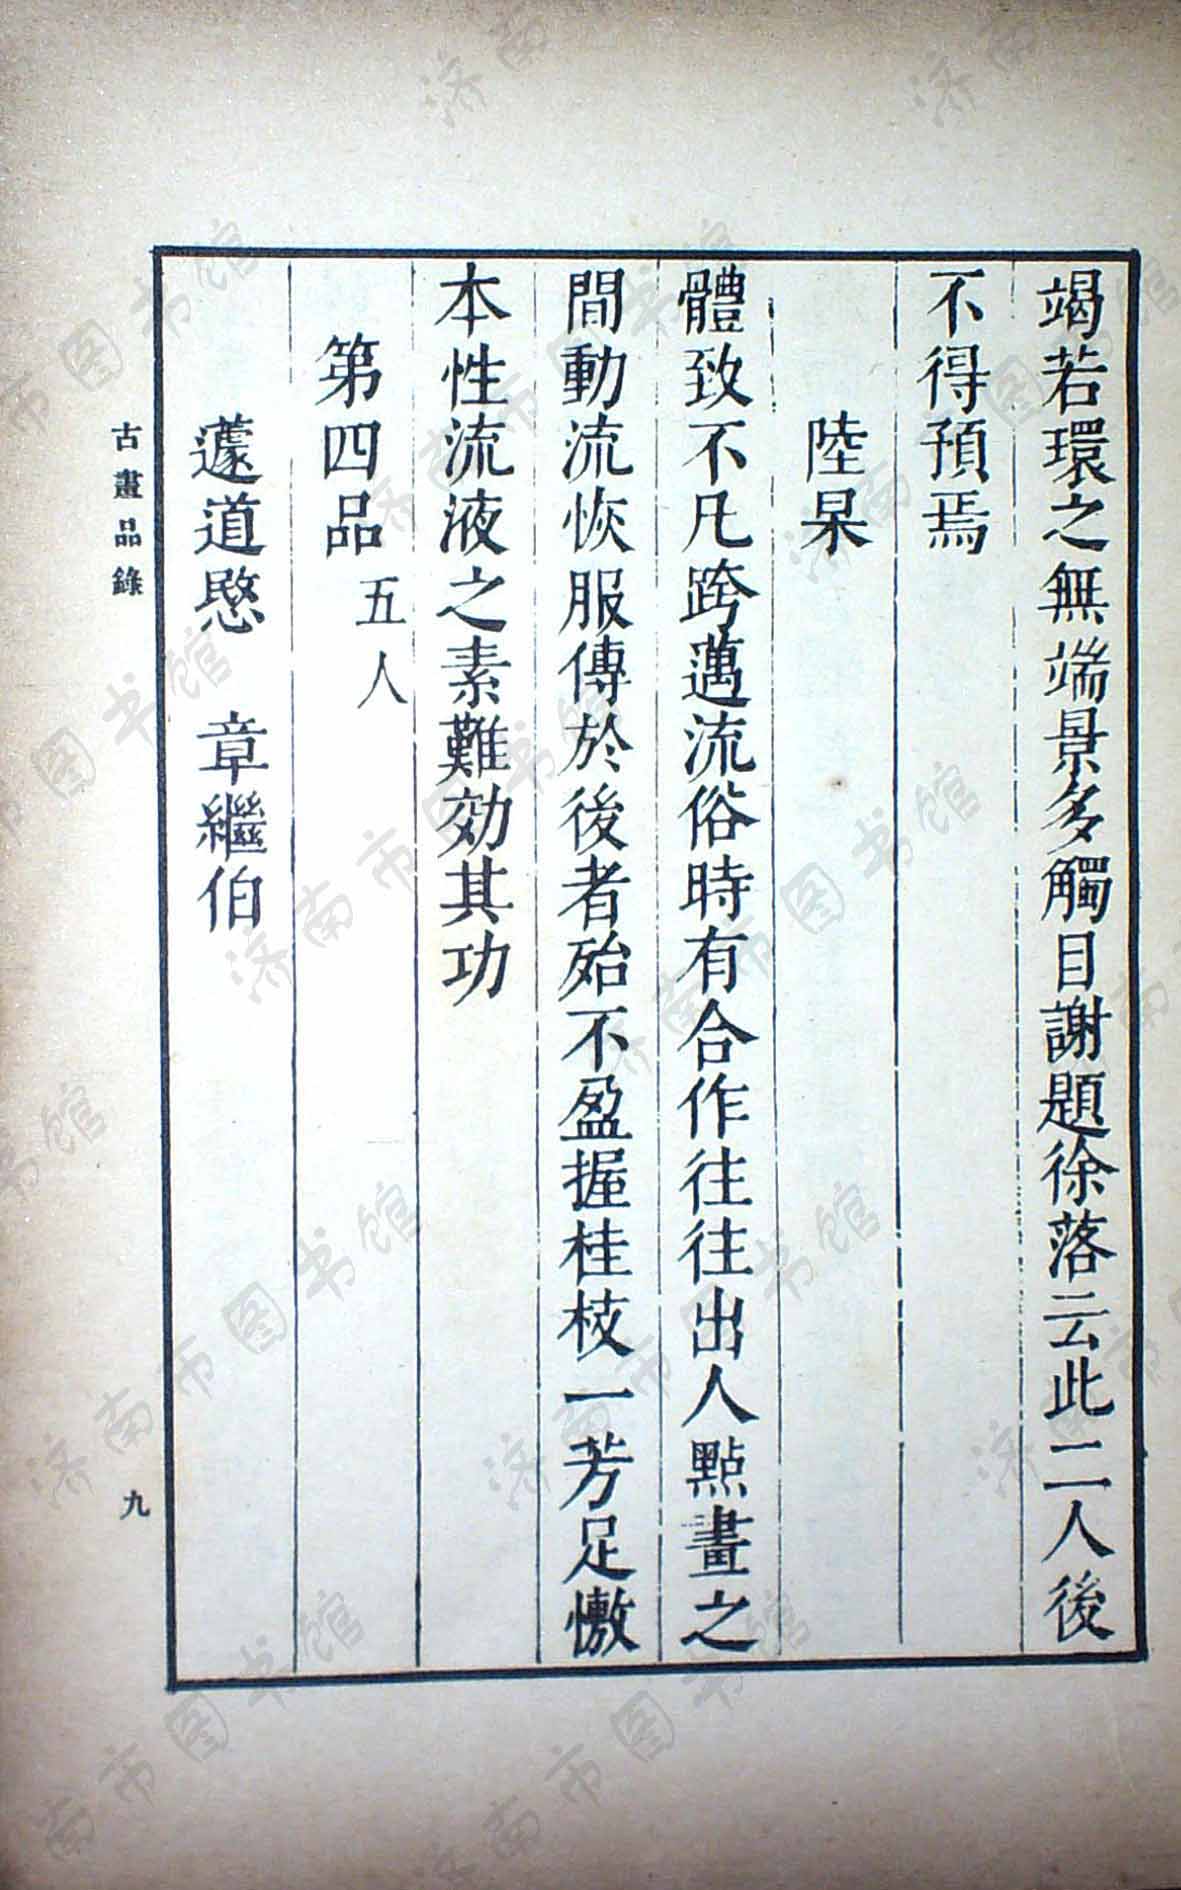 竭若環之無端景多觸目謝題徐落云此二人後
不得預焉
陸杲
體致不凡跨邁流俗時有合作往往出人點畫之
間動流恢服傳於後者殆不盈握桂枝一芳足憿
本性流液之素難効其功
第四品五人
蘧道愍 章繼伯
古畫品錄
九
济南市图书馆